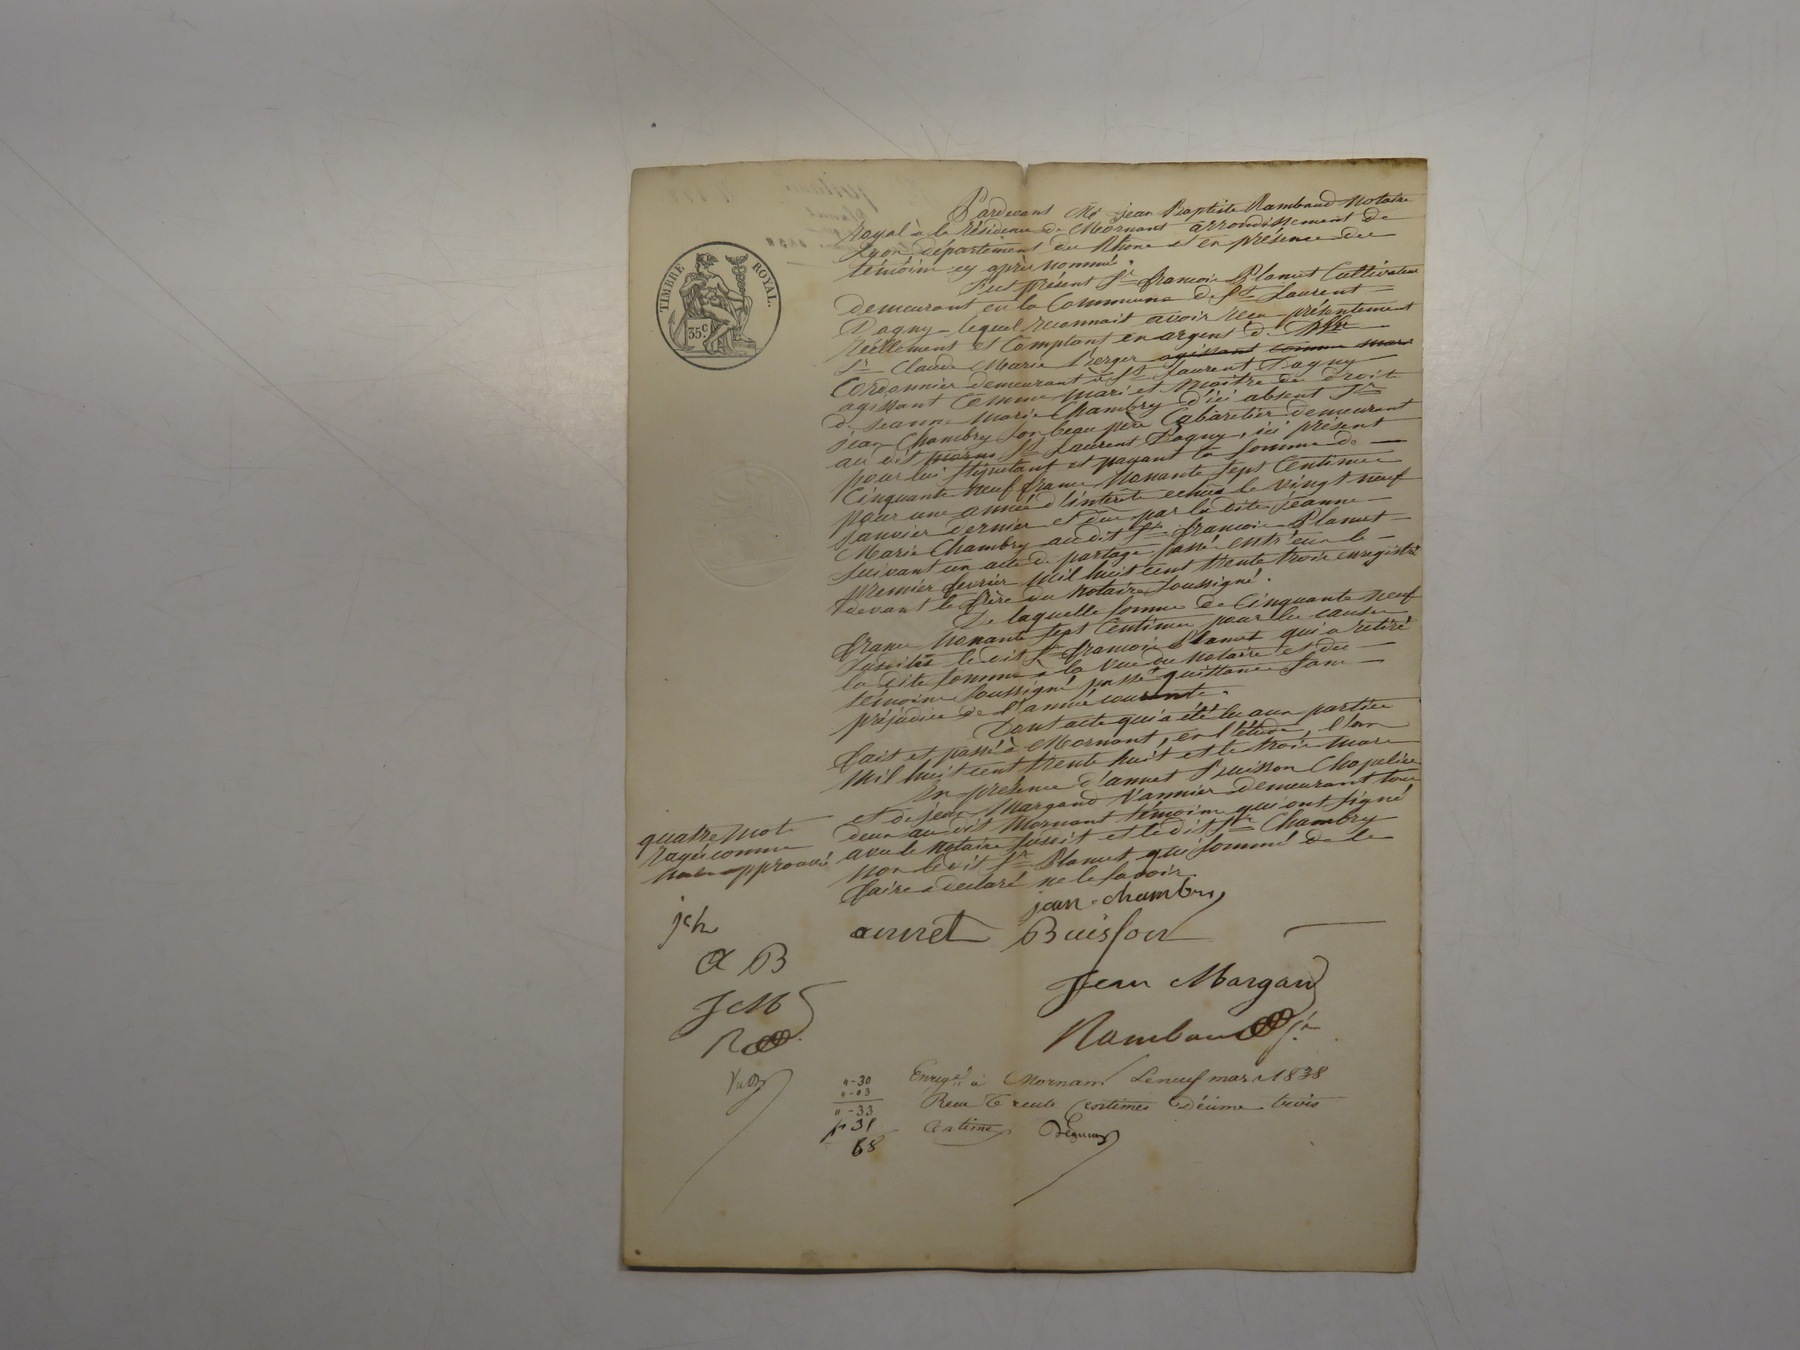 TIMBRE ROYAL.
35.c
Pardevant Me jean Baptiste Rambaud Notaire
Royal à la Résidence de Mornant arrondissement de
Lyon département du Rhône et en présence des
témoins cy après nommés.
Fut présent Sr. françois Planut Cultivateur
demeurant en la Commune de St Laurent
Dagny lequel reconnait avoir reçu présentement
Réellement et Comptant en argent de
Sr Claude Marie Berger agissant comme mari
Cordonnier demeurant à St Laurent Dagny
agissant Comme mari et maitre de droits
de jeanne Marie Chambry d'ici absent Sr
jean Chambry son beau père Cabaretier demeurant
au dit St Laurent Dagny, ici présent
pour lui stipulant et payant la somme de
Cinquante neuf francs Nonante sept Centimes
pour une année d'intérêt echus le vingt neuf
janvier dernier et dus par la dite jeanne
Marie Chambry au dit Sr françois Planut
suivant un acte de partage passé entr'eux le
premier fevrier mil huit cent trente trois enregistré
devant le frère du Notaire soussigné.
De laquelle somme de Cinquante neuf
francs Nonante sept Centimes pour les causes
susdites le dit Sr françois Planut qui a retiré
la dite somme à la vue du Notaire et des
témoins soussignés passe quittance sans
préjudice de l'année courante.
Dont acte qui a été lu aux parties
fait et passé à Mornant, en l'étude, l'an
mil huit cent trente huit et le trois mars
En présence d'annet Buisson Chapelier
et de jean Margand Vannier demeurant tous
deux au dit Mornant témoins qui ont signé
avec le Notaire susdit et le dit Sr Chambry
non le dit Sr Planut qui sommé de le
faire a declaré ne le savoir
quatre mots
rayés comme
non approuvé
jean chambry
jch
annet Buisson
A B
Jean Margand
JM
Rambaud
R
Enregé à Mornant Le neuf mars 1838
Reçu Trente centimes Décime trois
Centimes
"-30
"-03
"-33
35
68